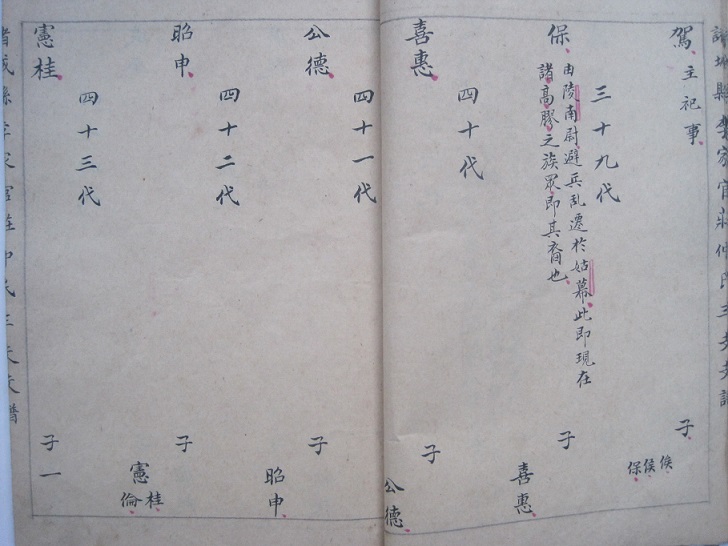 駕 主祀事
子 俟 侯 保
三十九代
保 由陵南尉避兵乱遷於姑幕此即現在
諸高膠之族眾即其裔也
子 喜惠
四十代
喜惠
子 公德
四十一代
公德
子 昭申
四十二代
昭申
子 憲桂 倫
四十三代
憲桂
子一